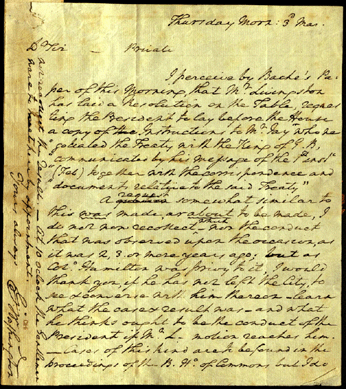 Thursday Morn: 3d Mar.
Dr Sir — Private
I perceive by Bache's Pa-
per of this Morning, that Mr. Livingston
has laid a Resolution on the Table, reques-
ting the President to lay before the House
a copy of the Instructions to Mr. Jay who ne-
gotiated the Treaty with the King of G. B.
communicated by his message of the 1st inst
(Feb) together with the correspondence and
documents relative to the said Treaty"
A request somewhat similar to
this was made, or about to be made, I
do not now recollect — nor the conduct
that was observed upon the occasion, as
it was 2, 3, or more years ago; but as
Colo. Hamilton was privy to it, I would
thank you, if he has not left the City, to
see & converse with him thereon — learn
what the case & result was — and what
he thinks ought to be the conduct of the
President if Mr. L— motion reaches him.
—cases of this kind are to be found in the
proceedings of the B. Hs. of Commons but I do
At 10 oclock the Gentlemen
were to meet
Yours always
G. Washington